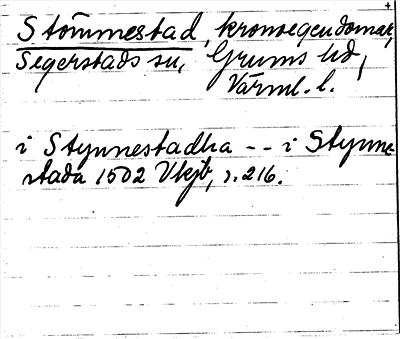 Stömmestad, kronoegendomar,
Segerstads sn, Grums hd,
Värml. l.
i Stynnestadha -- i Stynne
stada 1502 Vkjb, s. 216.